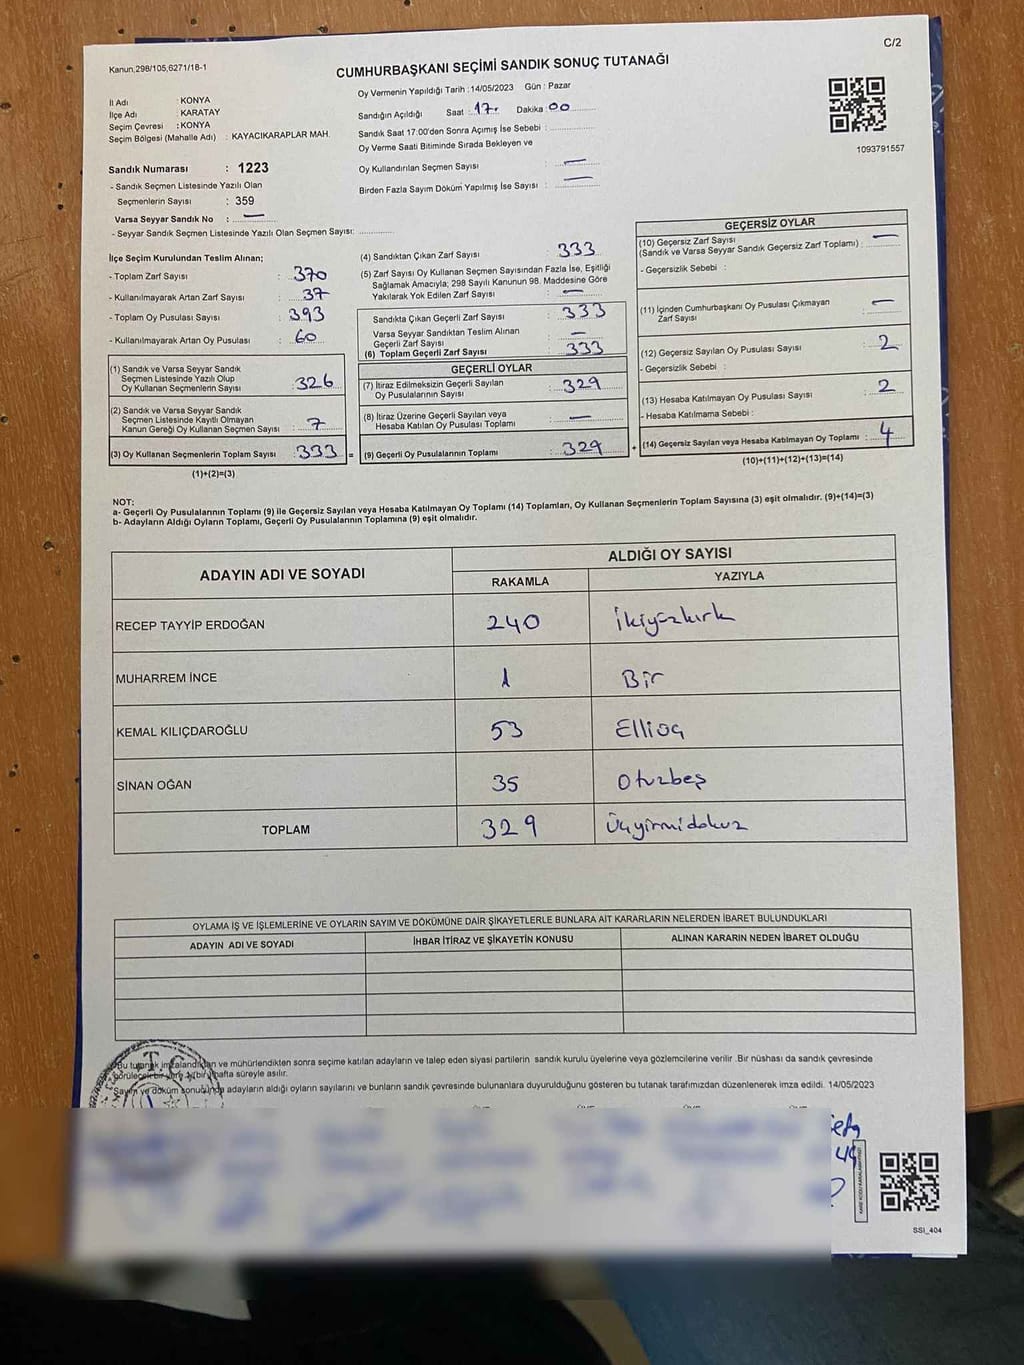 C/2
Kanun,298/105,6271/18-1
CUMHURBAŞKANI SEÇİMİ SANDIK SONUÇ TUTANAĞI
Oy Vermenin Yapıldığı Tarih :14/05/2023 Gün : Pazar
İl Adı : KONYA
İlçe Adı : KARATAY
Seçim Çevresi : KONYA
Seçim Bölgesi (Mahalle Adı) : KAYACIKARAPLAR MAH.
Sandığın Açıldığı Saat : 17. Dakika : 00
Sandık Saat 17.00'den Sonra Açımış İse Sebebi :
Oy Verme Saati Bitiminde Sırada Bekleyen ve
Oy Kullandırılan Seçmen Sayısı : —
Birden Fazla Sayım Döküm Yapılmış İse Sayısı : —
1093791557
Sandık Numarası : 1223
- Sandık Seçmen Listesinde Yazılı Olan
Seçmenlerin Sayısı : 359
Varsa Seyyar Sandık No : —
- Seyyar Sandık Seçmen Listesinde Yazılı Olan Seçmen Sayısı:
İlçe Seçim Kurulundan Teslim Alınan;
- Toplam Zarf Sayısı : 370
- Kullanılmayarak Artan Zarf Sayısı : 37
- Toplam Oy Pusulası Sayısı : 393
- Kullanılmayarak Artan Oy Pusulası : 60
(1) Sandık ve Varsa Seyyar Sandık
Seçmen Listesinde Yazılı Olup
Oy Kullanan Seçmenlerin Sayısı : 326
(2) Sandık ve Varsa Seyyar Sandık
Seçmen Listesinde Kayıtlı Olmayan
Kanun Gereği Oy Kullanan Seçmen Sayısı : 7
(3) Oy Kullanan Seçmenlerin Toplam Sayısı : 333 =
(1)+(2)=(3)
(4) Sandıktan Çıkan Zarf Sayısı : 333
(5) Zarf Sayısı Oy Kullanan Seçmen Sayısından Fazla İse, Eşitliği
Sağlamak Amacıyla; 298 Sayılı Kanunun 98. Maddesine Göre
Yakılarak Yok Edilen Zarf Sayısı : —
Sandıkta Çıkan Geçerli Zarf Sayısı : 333
Varsa Seyyar Sandıktan Teslim Alınan
Geçerli Zarf Sayısı : —
(6) Toplam Geçerli Zarf Sayısı : 333
GEÇERLİ OYLAR
(7) İtiraz Edilmeksizin Geçerli Sayılan
Oy Pusulalarının Sayısı : 329
(8) İtiraz Üzerine Geçerli Sayılan veya
Hesaba Katılan Oy Pusulası Toplamı : —
(9) Geçerli Oy Pusulalarının Toplamı : 329 +
GEÇERSİZ OYLAR
(10) Geçersiz Zarf Sayısı
(Sandık ve Varsa Seyyar Sandık Geçersiz Zarf Toplamı) : —
- Geçersizlik Sebebi :
(11) İçinden Cumhurbaşkanı Oy Pusulası Çıkmayan
Zarf Sayısı : —
(12) Geçersiz Sayılan Oy Pusulası Sayısı : 2
- Geçersizlik Sebebi :
(13) Hesaba Katılmayan Oy Pusulası Sayısı : 2
- Hesaba Katılmama Sebebi :
(14) Geçersiz Sayılan veya Hesaba Katılmayan Oy Toplamı : 4
(10)+(11)+(12)+(13)=(14)
NOT:
a- Geçerli Oy Pusulalarının Toplamı (9) ile Geçersiz Sayılan veya Hesaba Katılmayan Oy Toplamı (14) Toplamları, Oy Kullanan Seçmenlerin Toplam Sayısına (3) eşit olmalıdır. (9)+(14)=(3)
b- Adayların Aldığı Oyların Toplamı, Geçerli Oy Pusulalarının Toplamına (9) eşit olmalıdır.
ADAYIN ADI VE SOYADI
ALDIĞI OY SAYISI
RAKAMLA YAZIYLA
RECEP TAYYİP ERDOĞAN 240 ikiyüzkırk
MUHARREM İNCE 1 Bir
KEMAL KILIÇDAROĞLU 53 Elliüç
SİNAN OĞAN 35 Otuzbeş
TOPLAM 329 Üçyirmidokuz
OYLAMA İŞ VE İŞLEMLERİNE VE OYLARIN SAYIM VE DÖKÜMÜNE DAİR ŞİKAYETLERLE BUNLARA AİT KARARLARIN NELERDEN İBARET BULUNDUKLARI
ADAYIN ADI VE SOYADI İHBAR İTİRAZ VE ŞİKAYETİN KONUSU ALINAN KARARIN NEDEN İBARET OLDUĞU
Bu tutanak imzalandıktan ve mühürlendikten sonra seçime katılan adayların ve talep eden siyasi partilerin sandık kurulu üyelerine veya gözlemcilerine verilir .Bir nüshası da sandık çevresinde
görülecek bir yere 1 (bir) hafta süreyle asılır.
Sayım ve döküm sonucunda adayların aldığı oyların sayılarını ve bunların sandık çevresinde bulunanlara duyurulduğunu gösteren bu tutanak tarafımızdan düzenlenerek imza edildi. 14/05/2023
T.C.
SSI_404